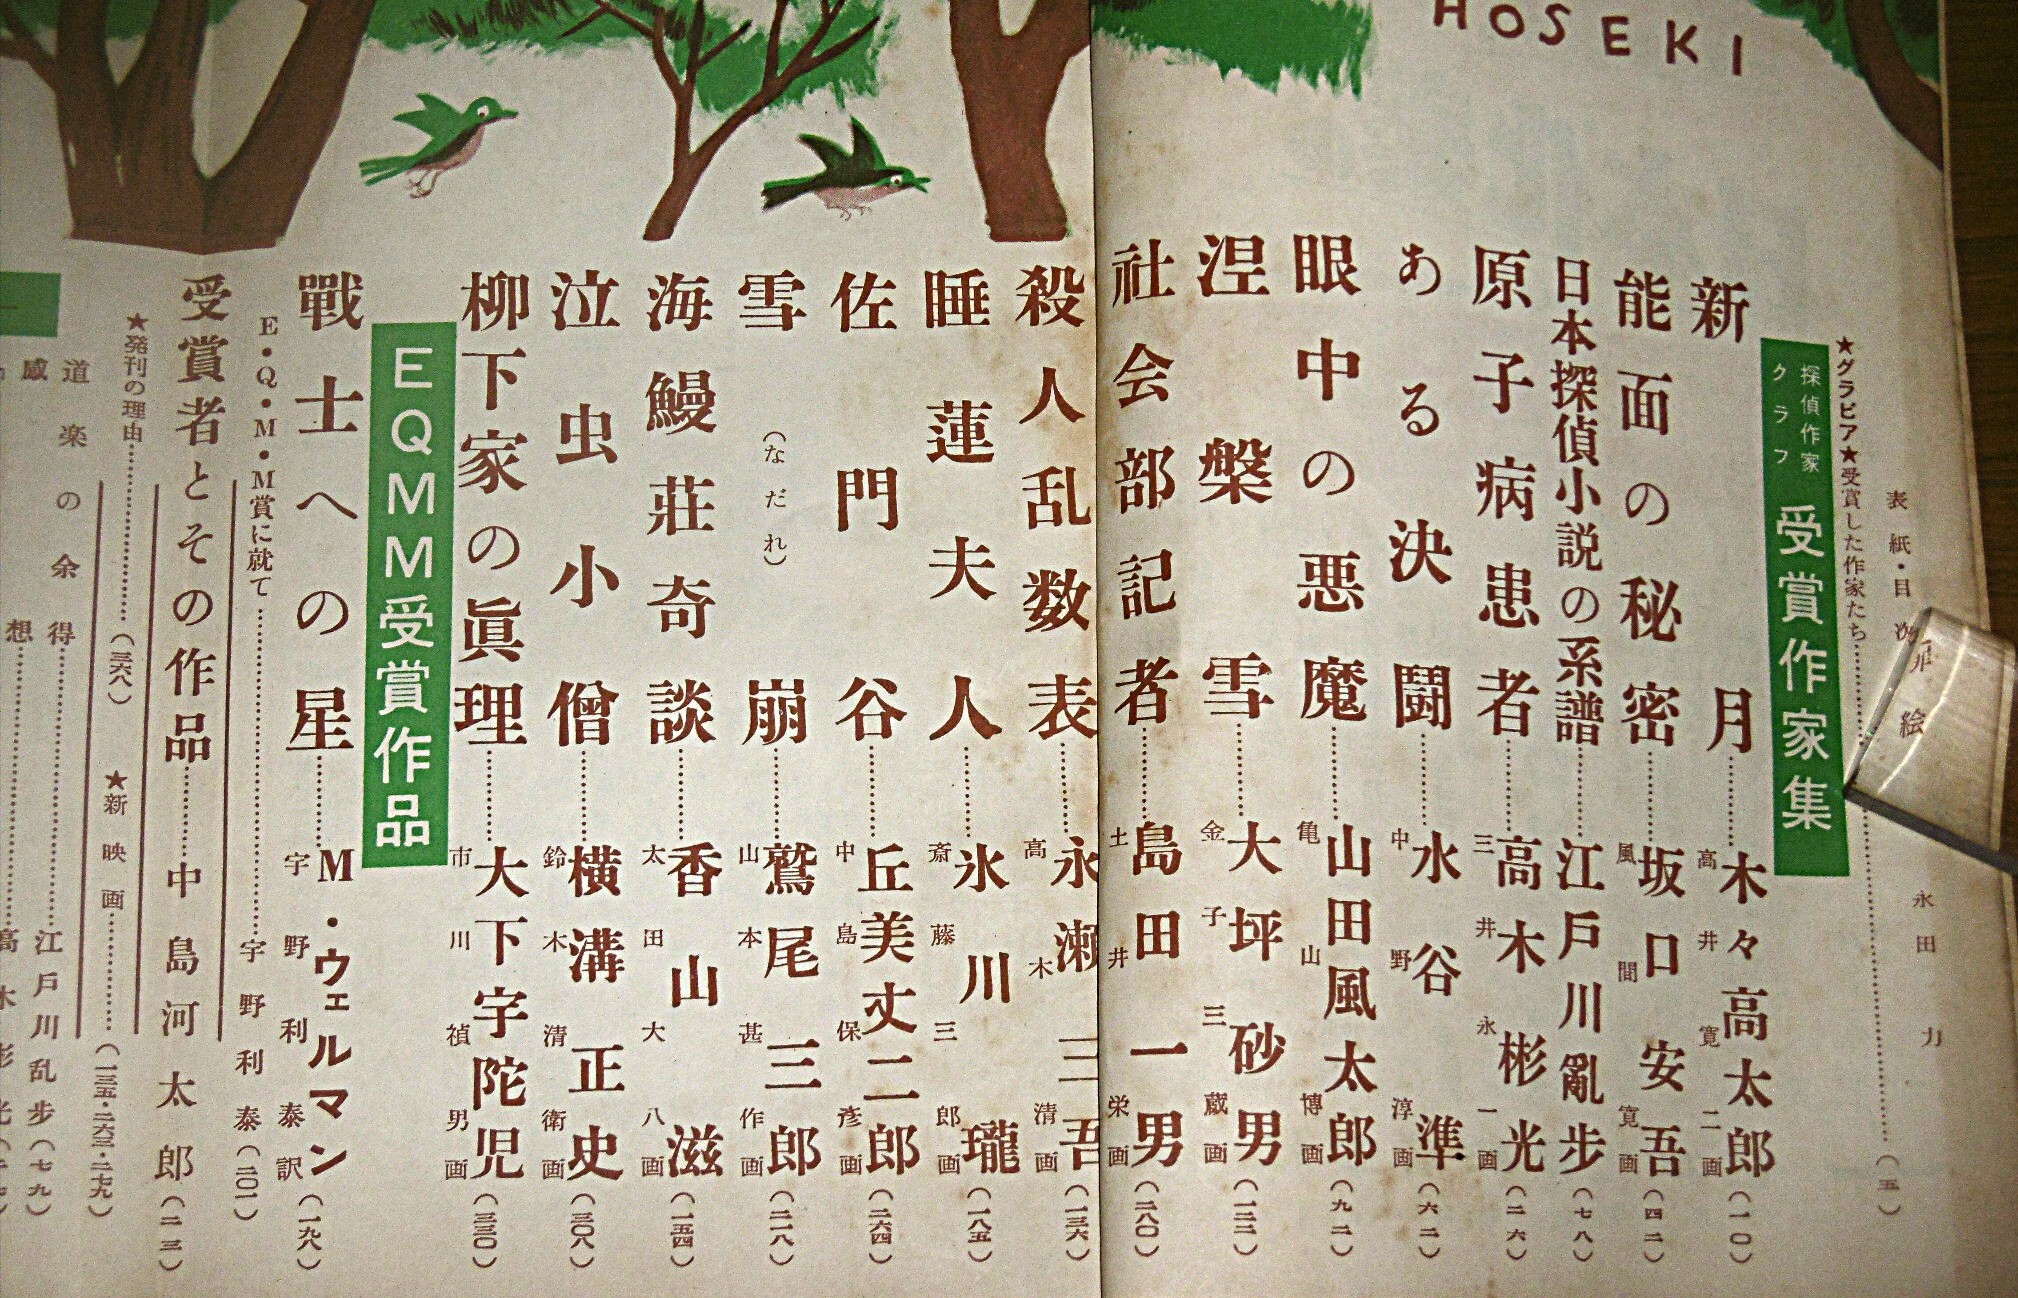 HOSEKI
表紙・目次・扉絵 永田力
★グラビア★受賞した作家たち(五)
探偵作家クラブ 受賞作家集
新月 木々高太郎(一〇)
高井寛二画
能面の秘密 坂口安吾(四二)
風間寛画
日本探偵小説の系譜 江戸川亂歩(七八)
原子病患者 高木彬光(二六)
三井永一画
ある決闘 水谷準(六二)
中野淳画
眼中の悪魔 山田風太郎(九二)
亀山博画
涅槃雪 大坪砂男(一二二)
金子三蔵画
社会部記者 島田一男(二八〇)
土井栄画
殺人乱数表 永瀬三吾(一三六)
高木清画
睡蓮夫人 氷川瓏(一八五)
斎藤三郎画
佐門谷 丘美丈二郎(二六四)
中島保彦画
雪崩(なだれ) 鷲尾三郎(二一八)
山本甚作画
海鰻荘奇談 香山滋(一五四)
太田大八画
泣虫小僧 横溝正史(三〇八)
鈴木清衛画
柳下家の眞理 大下宇陀児(三三〇)
市川禎男画
EQMM受賞作品
戰士への星 M・ウェルマン(一九八)
宇野利泰訳
E・Q・M・M賞に就て 宇野利泰(二〇一)
受賞者とその作品 中島河太郎(二一三)
★発刊の理由(三六八)
★新映画(一三五・二六三・二七九)
道楽の余得 江戸川乱歩(七九)
感想 高木彬光